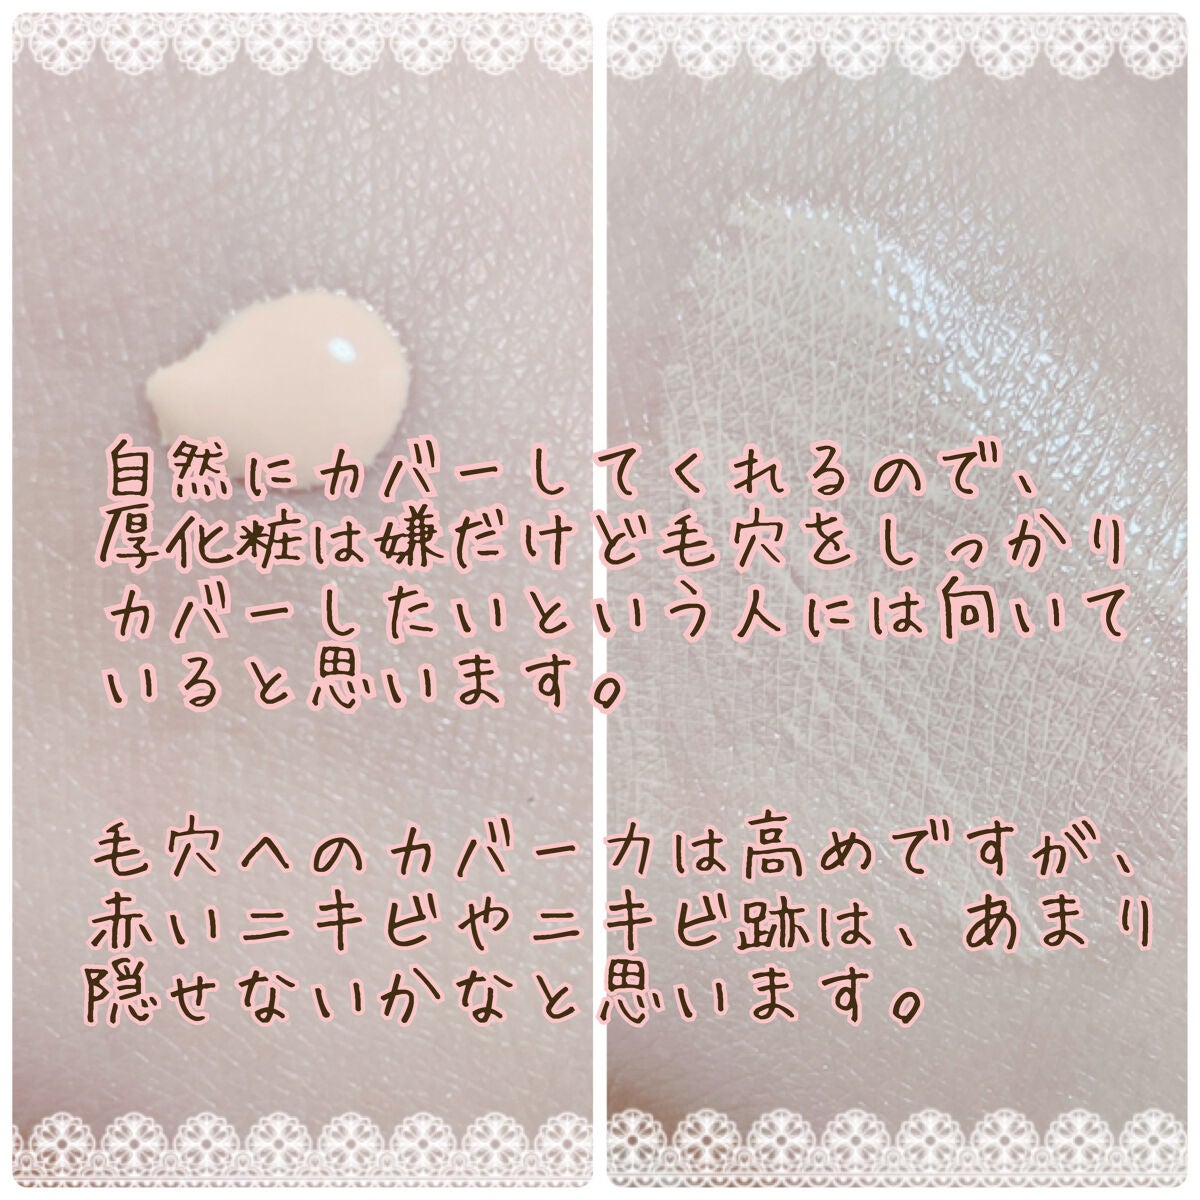 自然にカバーしてくれるので、
厚化粧は嫌だけど毛穴をしっかり
カバーしたいという人には向いて
いると思います。
毛穴へのカバー力は高めですが、
赤いニキビやニキビ跡は、あまり
隠せないかなと思います。